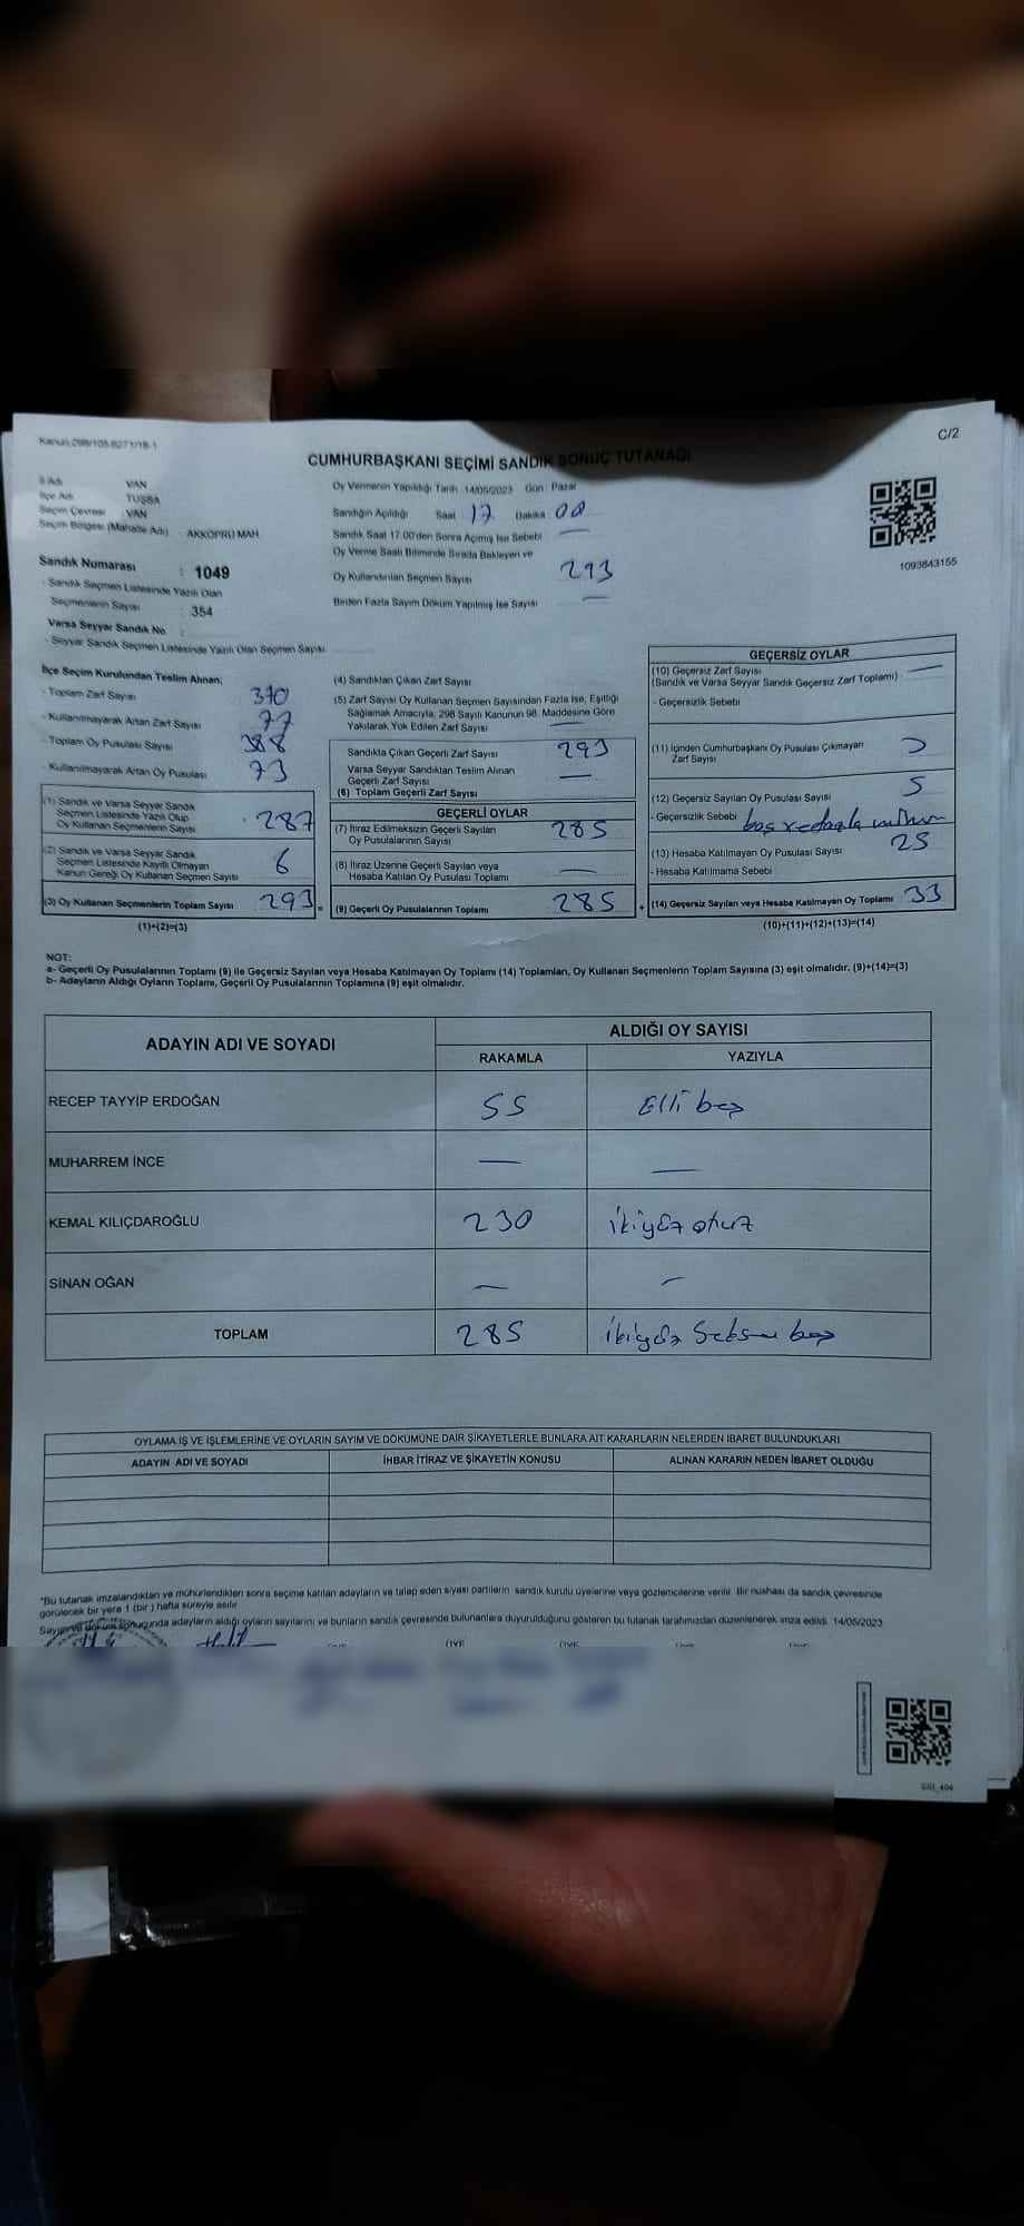 C/2
CUMHURBAŞKANI SEÇİMİ SANDIK SONUÇ TUTANAĞI
İli Adı VAN
İlçe Adı TUŞBA
Seçim Çevresi VAN
Seçim Bölgesi (Mahalle Adı) AKKÖPRÜ MAH.
Sandık Numarası : 1049
- Sandık Seçmen Listesinde Yazılı Olan
Seçmenlerin Sayısı : 354
Varsa Seyyar Sandık No :
- Seyyar Sandık Seçmen Listesinde Yazılı Olan Seçmen Sayısı
Oy Vermenin Yapıldığı Tarih 14/05/2023 Gün Pazar
Sandığın Açıldığı Saat 17 Dakika 00
Sandık Saat 17.00'den Sonra Açılmış İse Sebebi —
Oy Verme Saati Bitiminde Sırada Bekleyen ve
Oy Kullandırılan Seçmen Sayısı 293
Birden Fazla Sayım Döküm Yapılmış İse Sayısı —
1093843155
İlçe Seçim Kurulundan Teslim Alınan;
- Toplam Zarf Sayısı 370
- Kullanılmayarak Artan Zarf Sayısı 77
- Toplam Oy Pusulası Sayısı 388
- Kullanılmayarak Artan Oy Pusulası 73
(1) Sandık ve Varsa Seyyar Sandık
Seçmen Listesinde Yazılı Olup
Oy Kullanan Seçmenlerin Sayısı 287
(2) Sandık ve Varsa Seyyar Sandık
Seçmen Listesinde Kayıtlı Olmayan
Kanun Gereği Oy Kullanan Seçmen Sayısı 6
(3) Oy Kullanan Seçmenlerin Toplam Sayısı 293
(1)+(2)=(3)
(4) Sandıktan Çıkan Zarf Sayısı
(5) Zarf Sayısı Oy Kullanan Seçmen Sayısından Fazla İse, Eşitliği
Sağlamak Amacıyla, 298 Sayılı Kanunun 98. Maddesine Göre
Yakılarak Yok Edilen Zarf Sayısı —
Sandıkta Çıkan Geçerli Zarf Sayısı 293
Varsa Seyyar Sandıktan Teslim Alınan
Geçerli Zarf Sayısı —
(6) Toplam Geçerli Zarf Sayısı
GEÇERLİ OYLAR
(7) İtiraz Edilmeksizin Geçerli Sayılan
Oy Pusulalarının Sayısı 285
(8) İtiraz Üzerine Geçerli Sayılan veya
Hesaba Katılan Oy Pusulası Toplamı —
(9) Geçerli Oy Pusulalarının Toplamı 285
GEÇERSİZ OYLAR
(10) Geçersiz Zarf Sayısı —
(Sandık ve Varsa Seyyar Sandık Geçersiz Zarf Toplamı)
- Geçersizlik Sebebi
(11) İçinden Cumhurbaşkanı Oy Pusulası Çıkmayan
Zarf Sayısı
(12) Geçersiz Sayılan Oy Pusulası Sayısı 5
- Geçersizlik Sebebi
(13) Hesaba Katılmayan Oy Pusulası Sayısı 25
- Hesaba Katılmama Sebebi
(14) Geçersiz Sayılan veya Hesaba Katılmayan Oy Toplamı 33
(10)+(11)+(12)+(13)=(14)
NOT:
a- Geçerli Oy Pusulalarının Toplamı (9) ile Geçersiz Sayılan veya Hesaba Katılmayan Oy Toplamı (14) Toplamları, Oy Kullanan Seçmenlerin Toplam Sayısına (3) eşit olmalıdır. (9)+(14)=(3)
b- Adayların Aldığı Oyların Toplamı, Geçerli Oy Pusulalarının Toplamına (9) eşit olmalıdır.
ADAYIN ADI VE SOYADI
ALDIĞI OY SAYISI
RAKAMLA YAZIYLA
RECEP TAYYİP ERDOĞAN 55 Elli beş
MUHARREM İNCE — —
KEMAL KILIÇDAROĞLU 230 ikiyüz otuz
SİNAN OĞAN — —
TOPLAM 285 ikiyüz Seksen beş
OYLAMA İŞ VE İŞLEMLERİNE VE OYLARIN SAYIM VE DÖKÜMÜNE DAİR ŞİKAYETLERLE BUNLARA AİT KARARLARIN NELERDEN İBARET BULUNDUKLARI
ADAYIN ADI VE SOYADI İHBAR İTİRAZ VE ŞİKAYETİN KONUSU ALINAN KARARIN NEDEN İBARET OLDUĞU
"Bu tutanak imzalandıktan ve mühürlendikten sonra seçime katılan adayların ve talep eden siyasi partilerin sandık kurulu üyelerine veya gözlemcilerine verilir. Bir nüshası da sandık çevresinde
görülecek bir yere 1 (bir) hafta süreyle asılır.
Sayım ve döküm sonucunda adayların aldığı oyların sayılarını ve bunların sandık çevresinde bulunanlara duyurulduğunu gösteren bu tutanak tarafımızdan düzenlenerek imza edildi. 14/05/2023